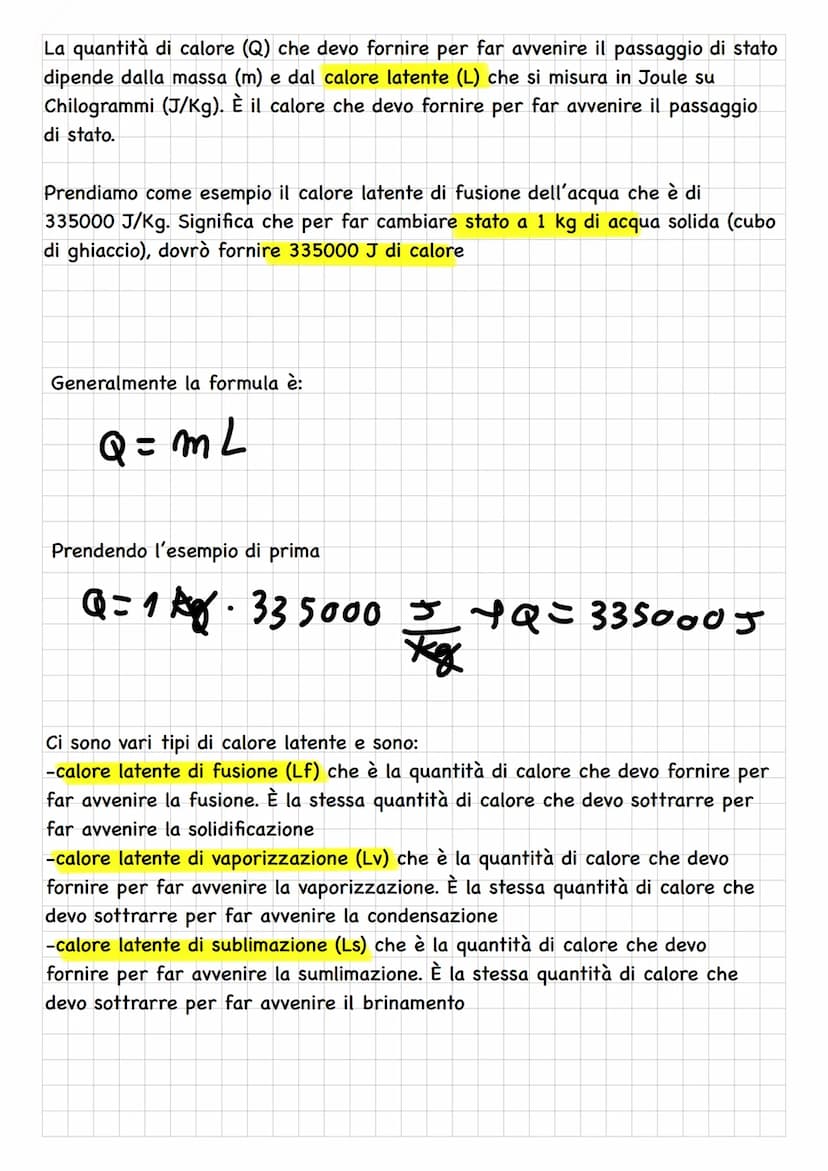 La quantità di calore (Q) che devo fornire per far avvenire il passaggio di stato
dipende dalla massa (m) e dal calore latente (L) che si misura in Joule su
Chilogrammi (J/Kg). È il calore che devo fornire per far avvenire il passaggio
di stato.
Prendiamo come esempio il calore latente di fusione dell'acqua che è di
335000 J/Kg. Significa che per far cambiare stato a 1 kg di acqua solida (cubo
di ghiaccio), dovrò fornire 335000 J di calore
Generalmente la formula è:
Q = m L
Prendendo l'esempio di prima
Q = 1 kg · 335000 J/kg → Q = 335000 J
Ci sono vari tipi di calore latente e sono:
-calore latente di fusione (Lf) che è la quantità di calore che devo fornire per
far avvenire la fusione. È la stessa quantità di calore che devo sottrarre per
far avvenire la solidificazione
-calore latente di vaporizzazione (Lv) che è la quantità di calore che devo
fornire per far avvenire la vaporizzazione. È la stessa quantità di calore che
devo sottrarre per far avvenire la condensazione
-calore latente di sublimazione (Ls) che è la quantità di calore che devo
fornire per far avvenire la sumlimazione. È la stessa quantità di calore che
devo sottrarre per far avvenire il brinamento